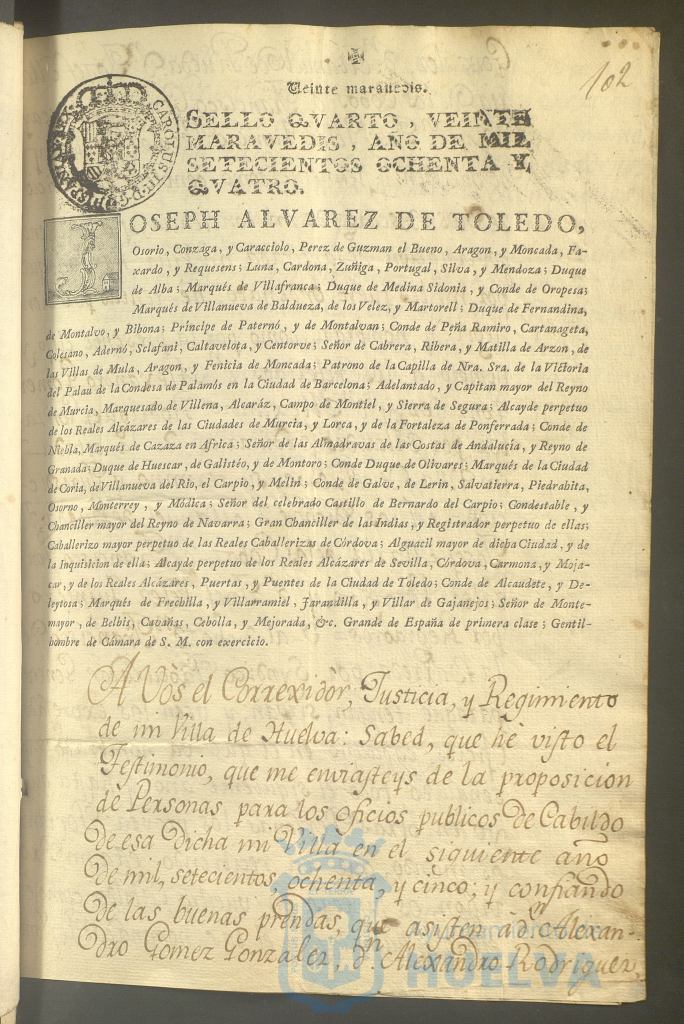 102
Veinte maravedis.
SELLO QVARTO, VEINTE
MARAVEDIS, AÑO DE MIL
SETECIENTOS OCHENTA Y
QVATRO.
CAROLUS III D G HISPANIAR REX
JOSEPH ALVAREZ DE TOLEDO,
Osorio, Conzaga, y Caracciolo, Perez de Guzman el Bueno, Aragon, y Moncada, Fa-
xardo, y Requesens; Luna, Cardona, Zuñiga, Portugal, Silva, y Mendoza; Duque
de Alba; Marqués de Villafranca; Duque de Medina Sidonia, y Conde de Oropesa;
Marqués de Villanueva de Baldueza, de los Velez, y Martorell; Duque de Fernandina,
de Montalvo, y Bibona; Príncipe de Paternó, y de Montalvan; Conde de Peña Ramiro, Cartanageta,
Colesano, Adernó, Sclafani, Caltavelota, y Centorve; Señor de Cabrera, Ribera, y Matilla de Arzon, de
las Villas de Mula, Aragon, y Fenicia de Moncada; Patrono de la Capilla de Nra. Sra. de la Victoria
del Palau de la Condesa de Palamós en la Ciudad de Barcelona; Adelantado, y Capitan mayor del Reyno
de Murcia, Marquesado de Villena, Alcaráz, Campo de Montiel, y Sierra de Segura; Alcayde perpetuo
de los Reales Alcázares de las Ciudades de Murcia, y Lorca, y de la Fortaleza de Ponferrada; Conde de
Niebla, Marqués de Cazaza en Africa; Señor de las Almadravas de las Costas de Andalucía, y Reyno de
Granada; Duque de Huescar, de Galistéo, y de Montoro; Conde Duque de Olivares; Marqués de la Ciudad
de Coria, de Villanueva del Rio, el Carpio, y Melin; Conde de Galve, de Lerin, Salvatierra, Piedrabita,
Osorno, Monterrey, y Módica; Señor del celebrado Castillo de Bernardo del Carpio; Condestable, y
Chanciller mayor del Reyno de Navarra; Gran Chanciller de las Indias, y Registrador perpetuo de ellas;
Caballerizo mayor perpetuo de las Reales Caballerizas de Córdova; Alguacil mayor de dicha Ciudad, y de
la Inquisicion de ella; Alcayde perpetuo de los Reales Alcázares de Sevilla, Córdova, Carmona, y Moja-
car, y de los Reales Alcázares, Puertas, y Puentes de la Ciudad de Toledo; Conde de Alcaudete, y De-
leytosa; Marqués de Frechilla, y Villarramiel, Jarandilla, y Villar de Gajanejos; Señor de Monte-
mayor, de Belbis, Cavañas, Cebolla, y Mejorada, &c. Grande de España de primera clase; Gentil-
hombre de Cámara de S. M. con exercicio.
A Vòs el Correxidor, Justicia, y Regimiento
de mi Villa de Huelva: Sabed, que hè visto el
Testimonio, que me enviasteys de la proposicion
de Personas para los oficios publicos de Cabildo
de esa dicha mi Villa en el siguiente año
de mil, setecientos, ochenta, y cinco; y confiando
de las buenas prendas, que asisten à dn. Alexan-
dro Gomez Gonzalez, dn. Alexandro Rodriguez,
HUELVA